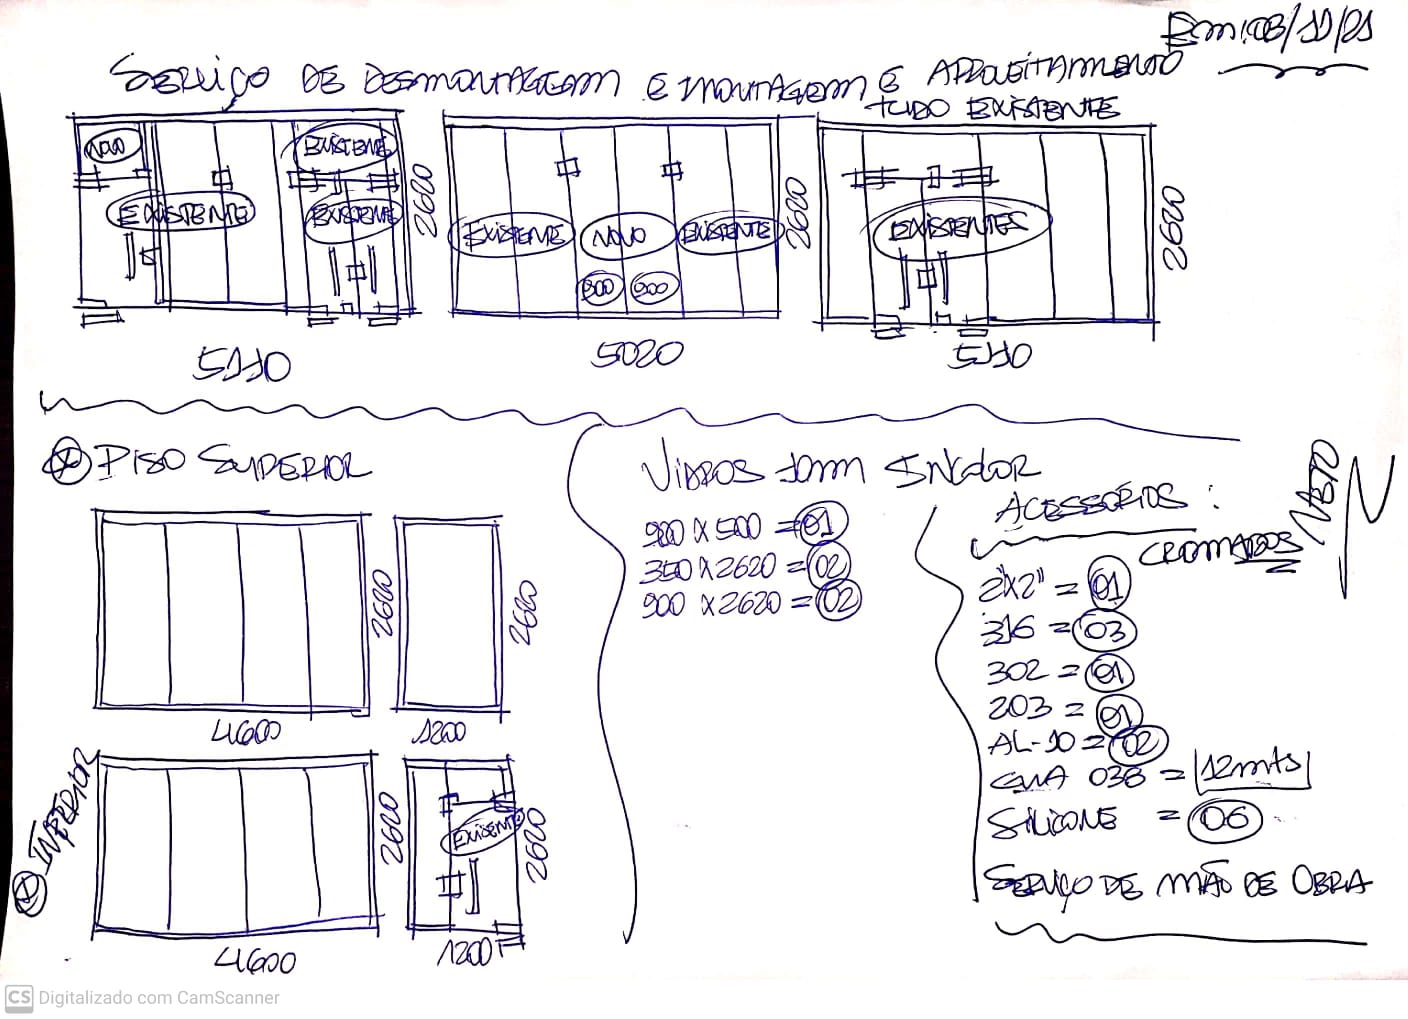 Em: 08/11/21
SERVIÇO DE DESMONTAGEM E MONTAGEM E APROVEITAMENTO
TUDO EXISTENTE
NOVO
EXISTENTE
EXISTENTE
EXISTENTE
2620
5110
EXISTENTE
NOVO
EXISTENTE
900
900
2620
5020
EXISTENTES
2620
5110
PISO SUPERIOR
2620
4600
2620
1200
INFERIOR
2620
4600
EXISTENTE
2620
1200
VIDROS 10mm INCOLOR
900 X 500 = 01
350 X 2620 = 02
900 X 2620 = 02
ACESSÓRIOS :
CROMADOS
2"X2" = 01
316 = 03
302 = 01
203 = 01
AL-10 = 02
GUIA 038 = 12mts
SILICONE = 06
SERVIÇO DE MÃO DE OBRA
CS Digitalizado com CamScanner